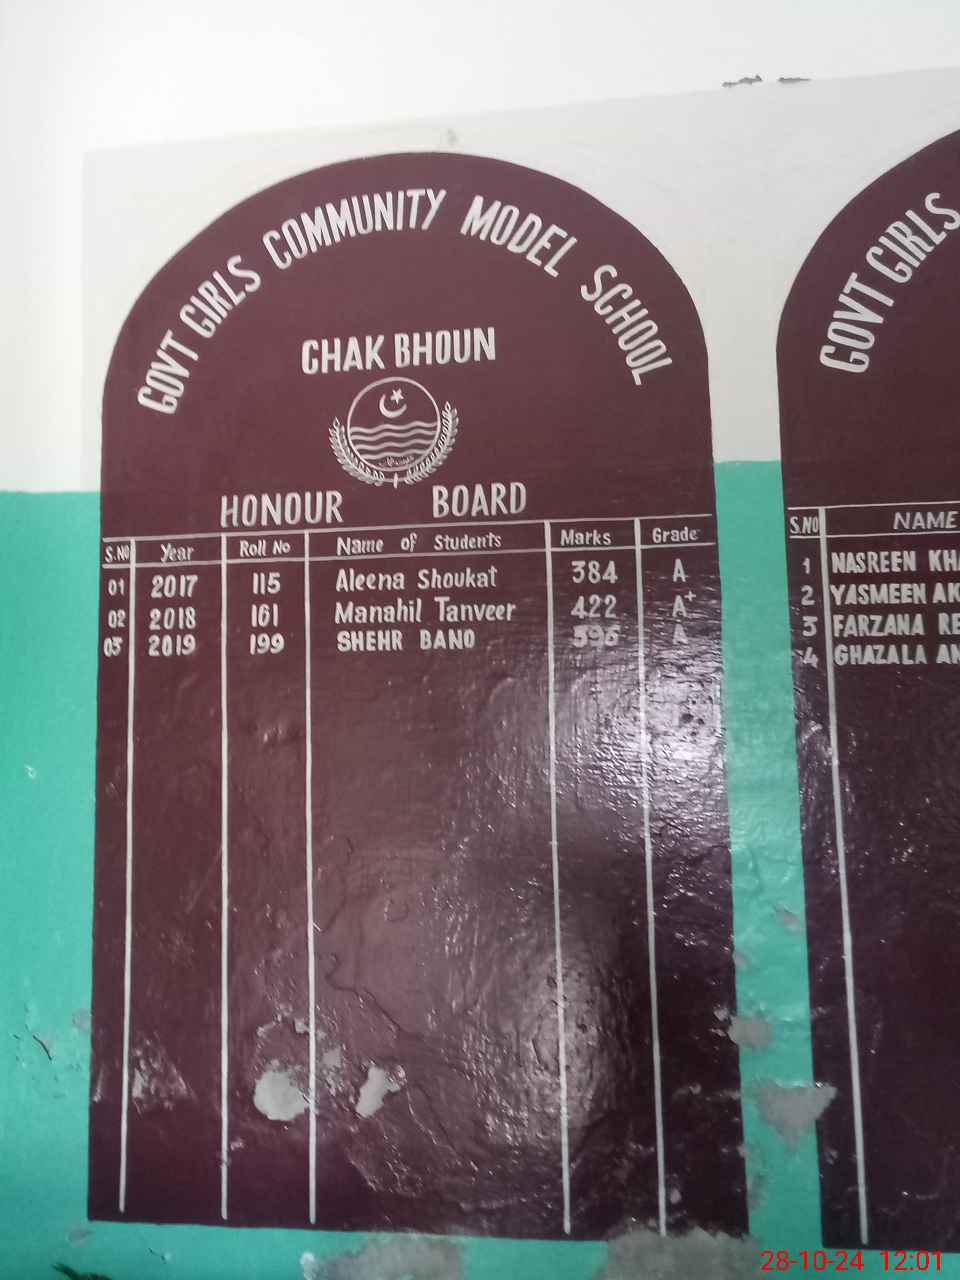 GOVT GIRLS COMMUNITY MODEL SCHOOL
CHAK BHOUN
HONOUR BOARD
S.NO Year Roll No Name of Students Marks Grade
01 2017 115 Aleena Shoukat 384 A
02 2018 161 Manahil Tanveer 422 A+
03 2019 199 SHEHR BANO 396 A
GOVT GIRLS
S.NO NAME
1 NASREEN
2 YASMEEN
3 FARZANA
4 GHAZALA
28-10-24 12:01